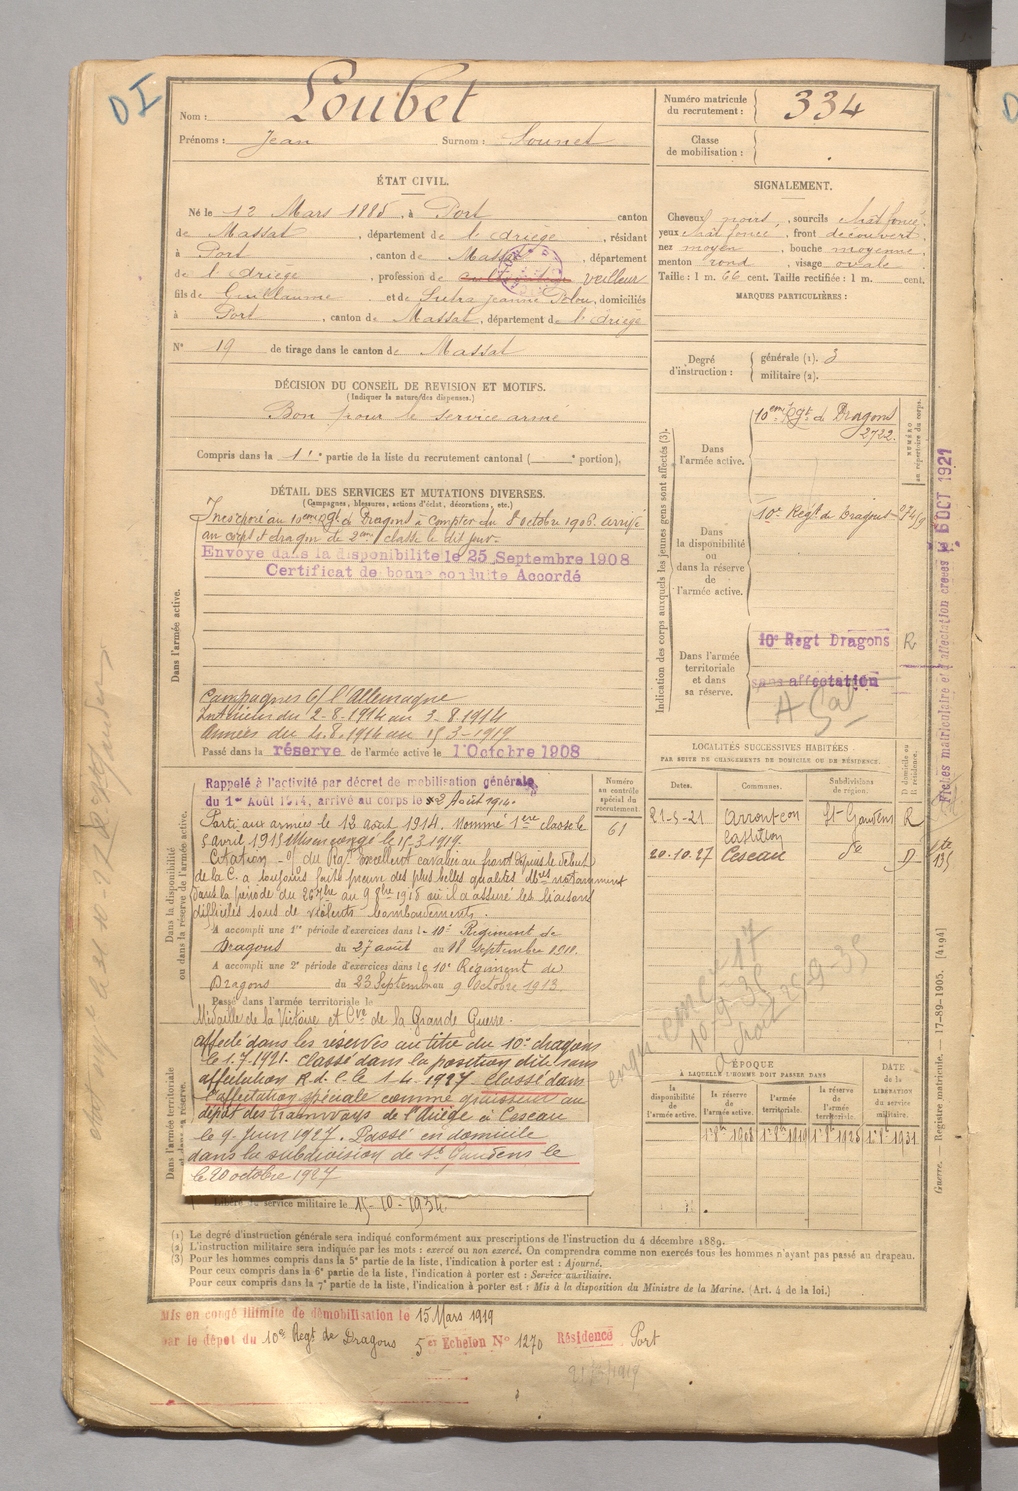 D I
Nom : Loubet
Prénoms : Jean Surnom : Sounet
ÉTAT CIVIL.
Né le 12 Mars 1885, à Port canton
de Massat, département de l'Ariège, résidant
à Port, canton de Massat, département
de l'Ariège, profession de veilleur
fils de Guillaume et de Sutra Jeanne Polou, domiciliés
à Port, canton de Massat, département de l'Ariège
N° 19 de tirage dans le canton de Massat
DÉCISION DU CONSEIL DE REVISION ET MOTIFS.
(Indiquer la nature des dispenses.)
Bon pour le service armé
Compris dans la 1re partie de la liste du recrutement cantonal ( e portion),
DÉTAIL DES SERVICES ET MUTATIONS DIVERSES.
(Campagnes, blessures, actions d'éclat, décorations, etc.)
Incorporé au 10eme Rgt de Dragons à compter du 8 octobre 1906. arrivé
au corps et dragon de 2eme classe le dit jour.
Envoyé dans la disponibilité le 25 Septembre 1908
Certificat de bonne conduite Accordé
Dans l'armée active.
Campagnes C/ l'Allemagne
Intérieur du 2-8-1914 au 3-8-1914
Armées du 4.8.1914 au 15-3-1919
Passé dans la réserve de l'armée active le 1 Octobre 1908
Rappelé à l'activité par décret de mobilisation générale
du 1er Août 1914, arrivé au corps le 2 Août 1914.
Parti aux armées le 12 août 1914. Nommé 1ère classe le
5 avril 1915 Mis en congé le 15.3.1919.
Citation - O/ du Rgt Excellent cavalier au front depuis le début
de la C. a toujours fait preuve des plus belles qualités Mres notamment
dans la période du 26 7bre au 9 8bre 1918 où il a assuré les liaisons
difficiles sous de violents bombardements.
A accompli une 1re période d'exercices dans le 10e Régiment de
Dragons du 27 août au 18 septembre 1910.
A accompli une 2e période d'exercices dans le 10e Régiment de
Dragons du 23 Septembre au 9 Octobre 1913.
Passé dans l'armée territoriale le
Médaille de la Victoire et Cve de la Grande Guerre.
Dans la disponibilité
ou dans la réserve de l'armée active.
Numéro
au contrôle
spécial du
recrutement.
61
Affecté dans les réserves au titre du 10e dragons
le 1.7.1921. Classé dans la position dite sans
affectation R.d.C. le 1.4.1927 Classé dans
l'affectation spéciale comme graisseur au
dépôt des tramways de l'Ariège à Cescau
le 9. Juin 1927. Passé en domicile
dans la subdivision de St Gaudens le
le 20 octobre 1927
Dans l'armée territoriale
réserve.
Libéré du service militaire le 15-10-1934.
Numéro matricule
du recrutement : 334
Classe
de mobilisation :
SIGNALEMENT.
Cheveux noirs, sourcils chat foncé,
yeux chat foncé, front découvert,
nez moyen, bouche moyenne,
menton rond, visage ovale.
Taille : 1 m. 66 cent. Taille rectifiée : 1 m. cent.
MARQUES PARTICULIÈRES :
Degré
d'instruction :
générale (1). 3
militaire (2).
Indication des corps auxquels les jeunes gens sont affectés (3).
NUMÉRO
au répertoire du corps.
Dans
l'armée active.
10eme Rgt de Dragons
2722.
Dans
la disponibilité
ou
dans la réserve
de
l'armée active.
10e Regt de Dragons
Dans l'armée
territoriale
et dans
sa réserve.
10e Regt Dragons R
sans affectation
LOCALITÉS SUCCESSIVES HABITÉES
PAR SUITE DE CHANGEMENTS DE DOMICILE OU DE RÉSIDENCE.
Dates. Communes. Subdivisions
de région. D domicile ou
R résidence.
21-5-21 Arrout en
Castillon St Gaudens R
20.10.27 Cescau do D
Fiches matriculaire et d'affectation créées le 6 OCT 1921
17
10-9-35
25-9-35
ÉPOQUE
À LAQUELLE L'HOMME DOIT PASSER DANS
la
disponibilité
de
l'armée active.
la réserve
de
l'armée active.
l'armée
territoriale.
la réserve
de
l'armée
territoriale.
DATE
de la
LIBÉRATION
du service
militaire.
1er 8bre 1908 1er 8bre 1919 1er 8bre 1925 1er 8bre 1931
Guerre. — Registre matricule. 17-89-1905. [4194]
(1) Le degré d'instruction générale sera indiqué conformément aux prescriptions de l'instruction du 4 décembre 1889.
(2) L'instruction militaire sera indiquée par les mots : exercé ou non exercé. On comprendra comme non exercés tous les hommes n'ayant pas passé au drapeau.
(3) Pour les hommes compris dans la 5e partie de la liste, l'indication à porter est : Ajourné.
Pour ceux compris dans la 6e partie de la liste, l'indication à porter est : Service auxiliaire.
Pour ceux compris dans la 7e partie de la liste, l'indication à porter est : Mis à la disposition du Ministre de la Marine. (Art. 4 de la loi.)
Mis en congé illimité de démobilisation le 15 Mars 1919
par le dépôt du 10e Regt de Dragons 5e Echelon N° 1270 Résidence Port